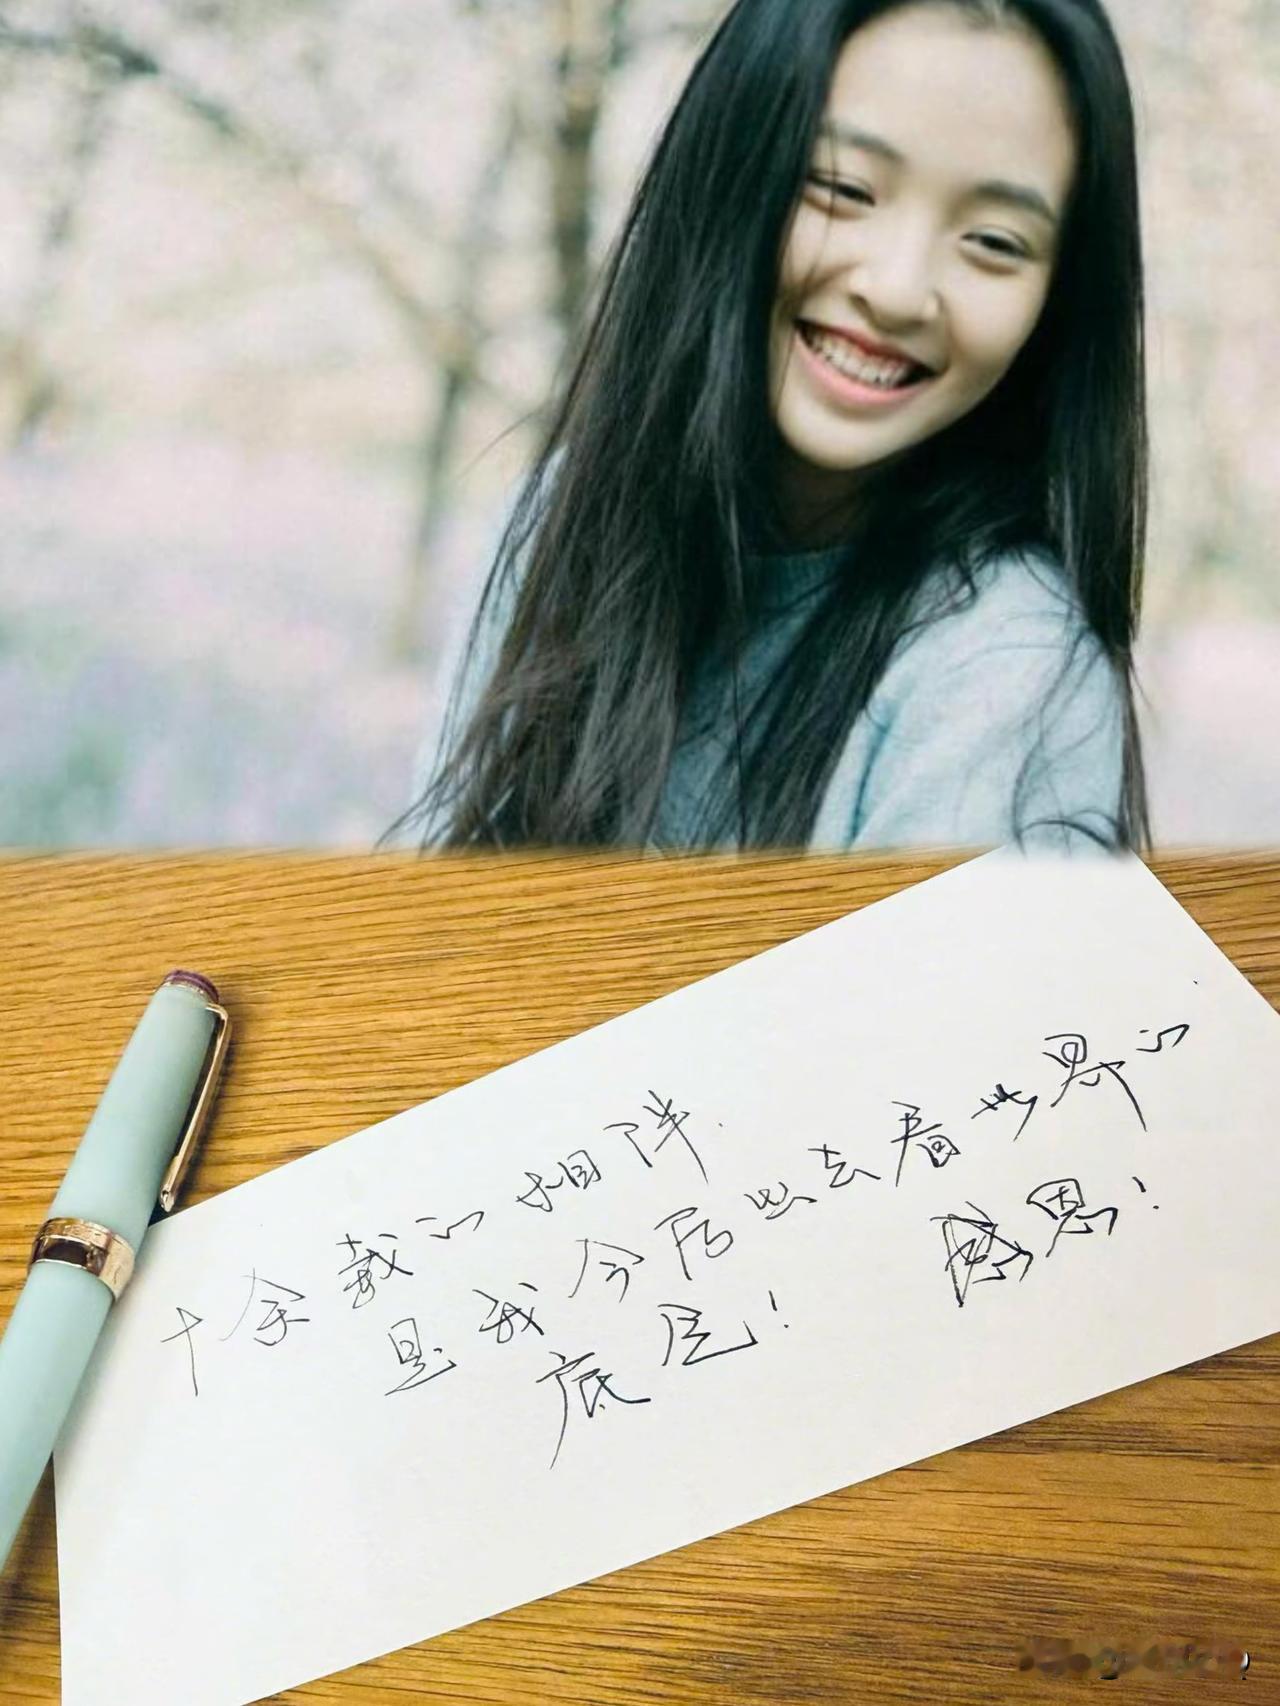 十余载的相伴.
是我今后出去看世界的
底气! 感恩!